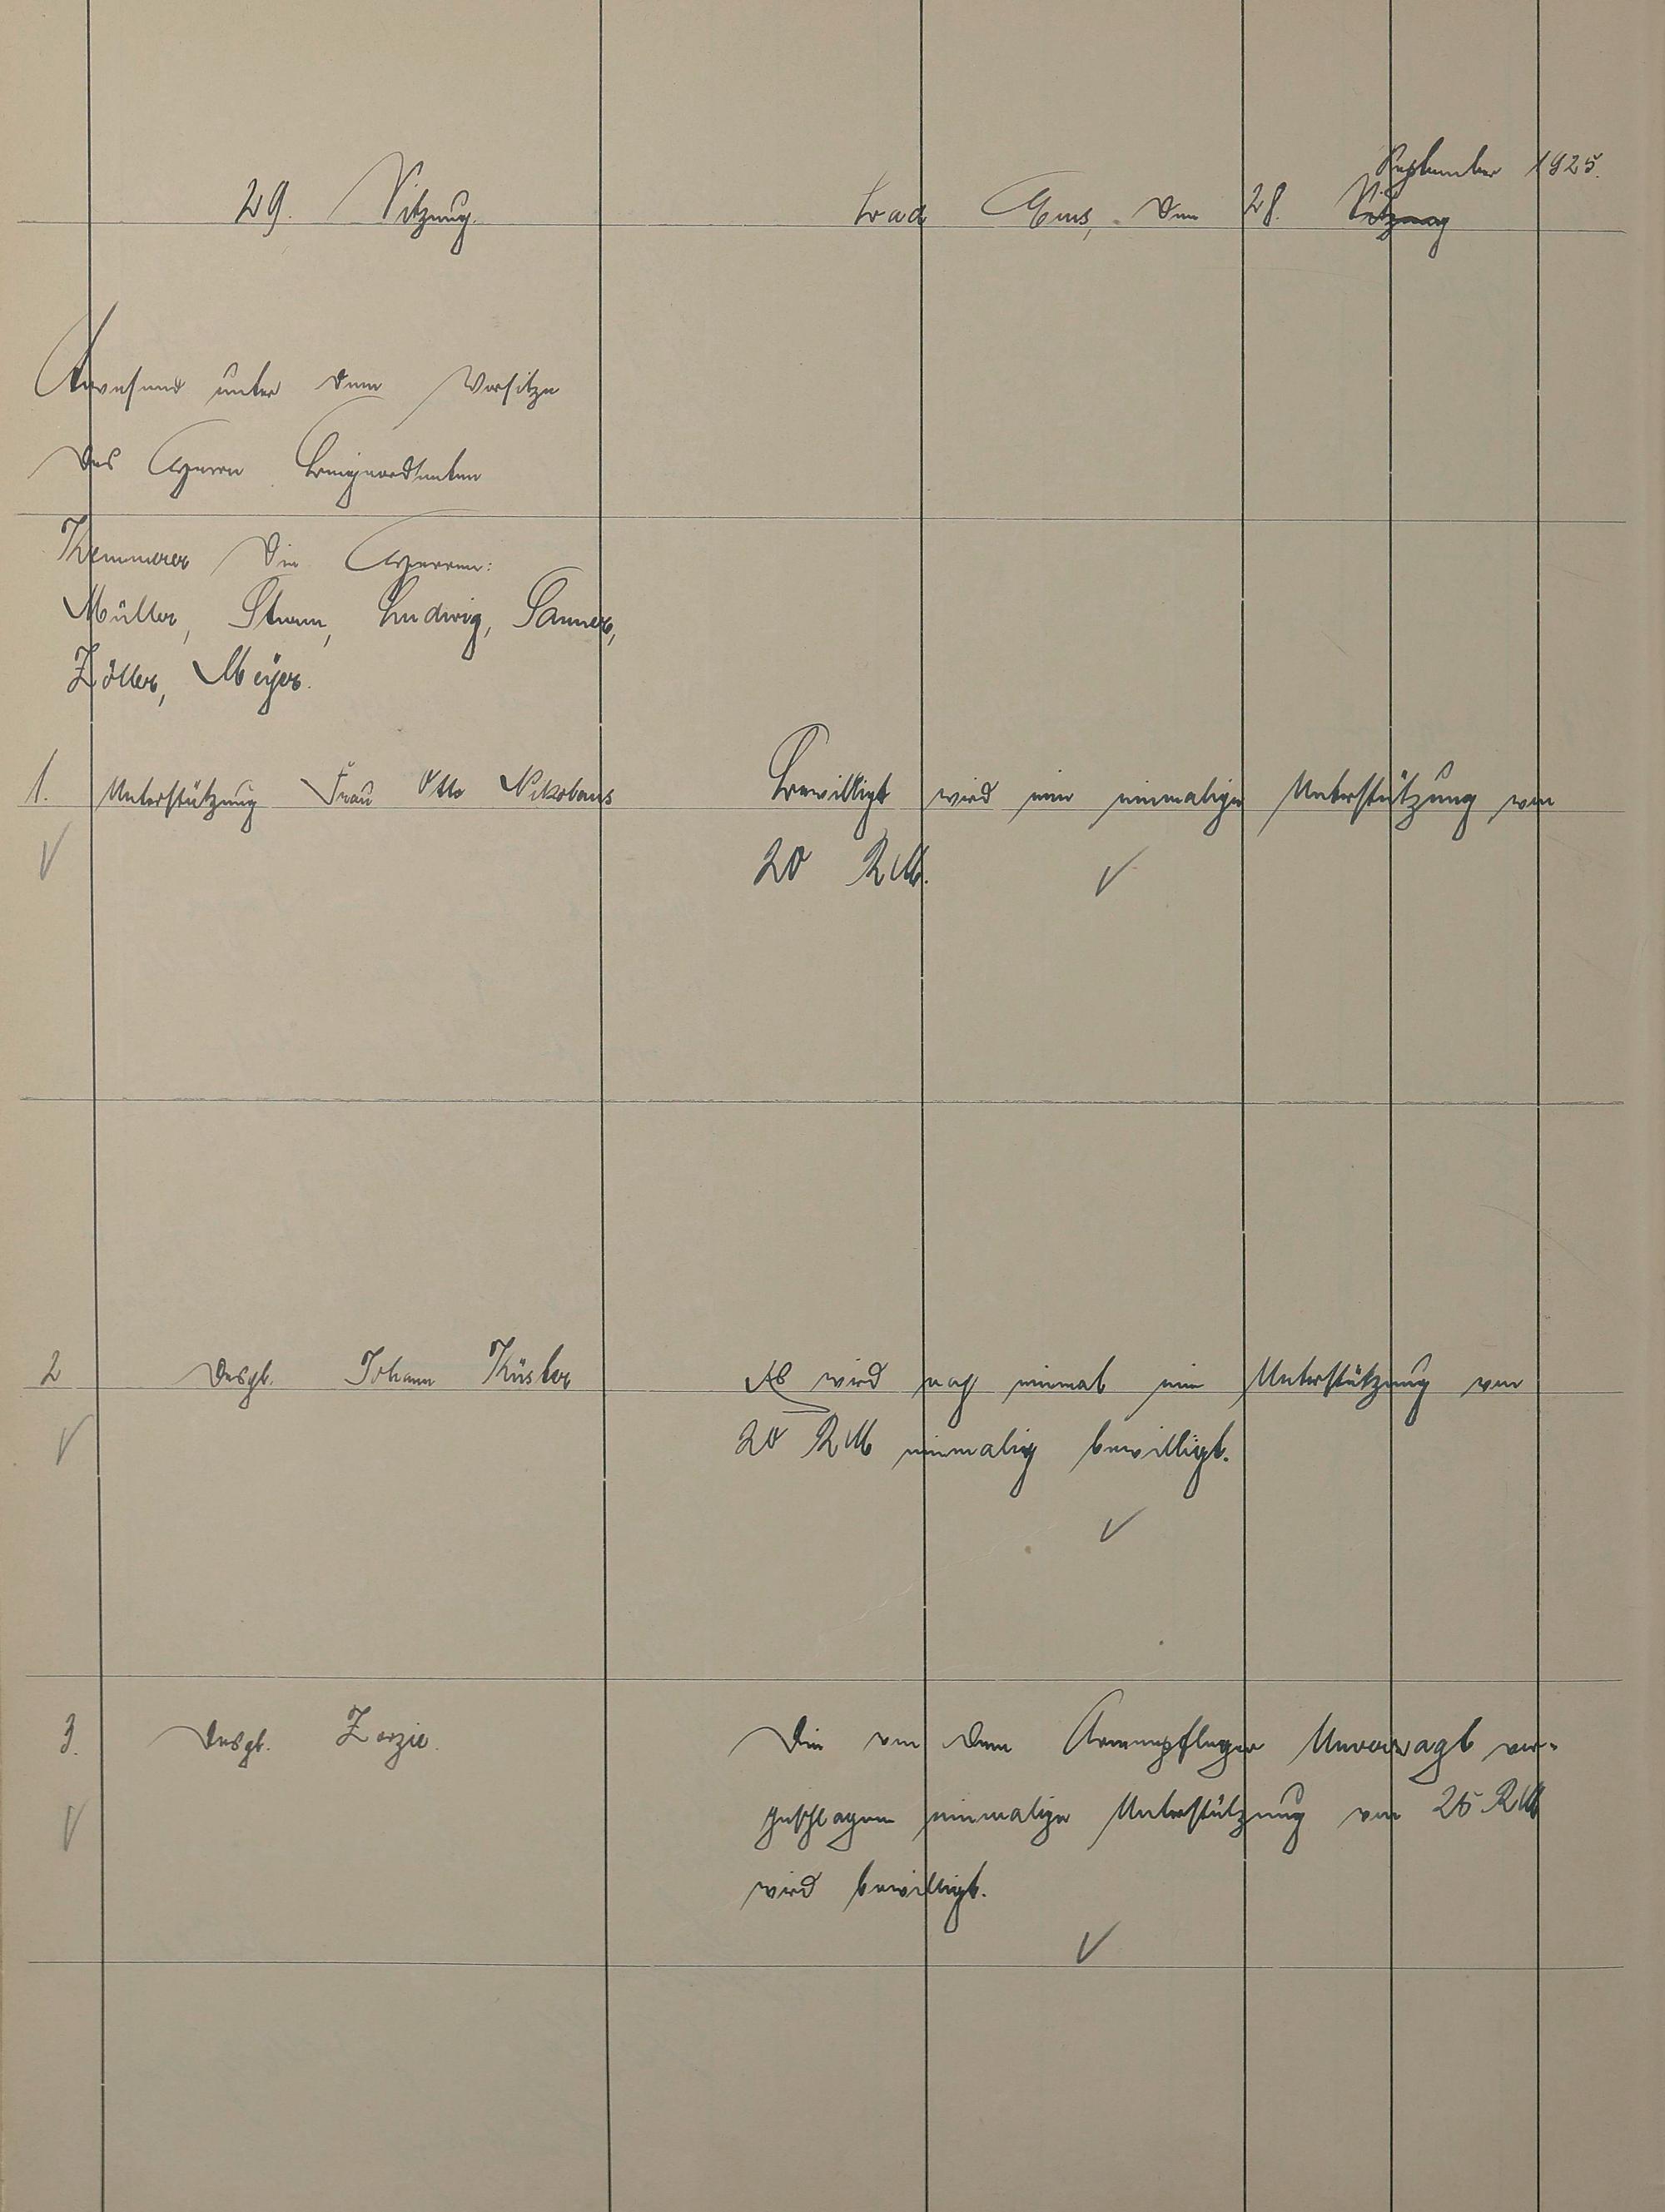 September 1925.
29. Sitzung. Bad Ems, den 28. Sitzung
Anwesend unter dem Vorsitze
des Herrn Beigeordneten
Kemmerer die Herren:
Müller, Sturm, Ludwig, Sanner,
Zöller, Meyer.
1. Unterstützung Frau Otto Nikolaus
Bewilligt wird eine einmalige Unterstützung von
20 RM.
2 Desgl. Johann Küster
Es wird noch einmal eine Unterstützung von
20 RM einmalig bewilligt.
3. Desgl. Zorzie.
Die von dem Armenpfleger Unverzagt vor-
geschlagene einmalige Unterstützung von 25 RM
wird bewilligt.